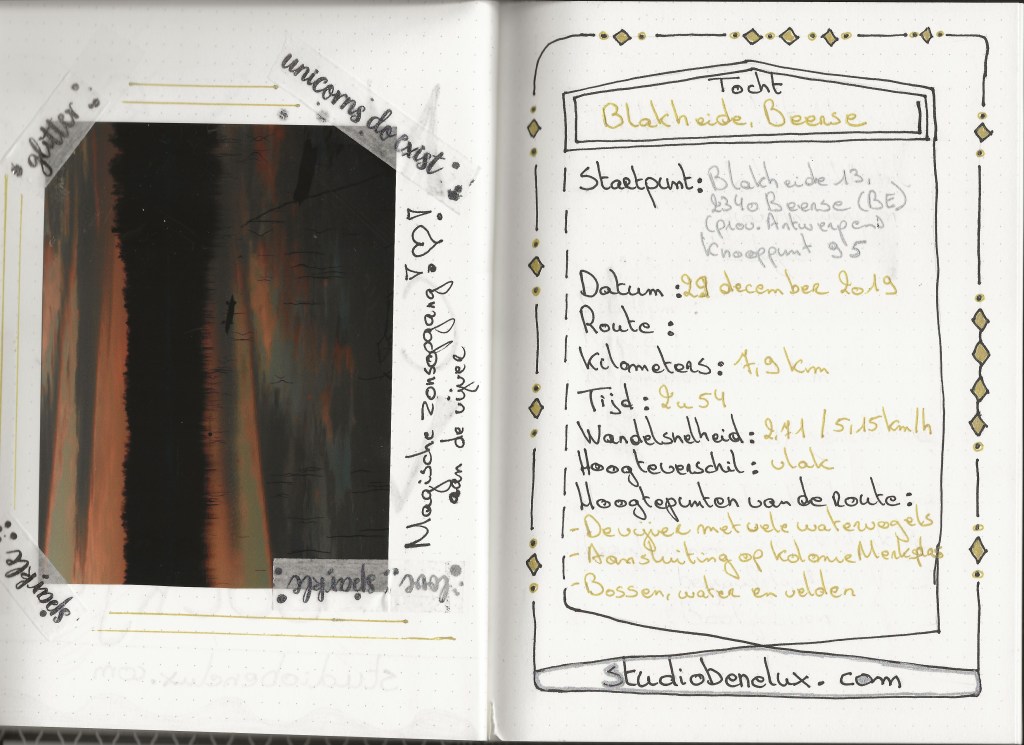 glitter
unicorns do exist
Magische zonsopgang!♡!
aan de vijver
sparkle
love sparkle
Tocht
Blakheide, Beerse
Startpunt: Blakheide 13,
2340 Beerse (BE)
(prov. Antwerpen)
Knooppunt 95
Datum: 29 december 2019
Route:
Kilometers: 7,9 km
Tijd: 2u54
Wandelsnelheid: 2,71 / 5,15 km/h
Hoogteverschil: vlak
Hoogtepunten van de route:
- De vijver met vele watervogels
- Aansluiting op Kolonie Merksplas
- Bossen, water en velden
studiobenelux.com